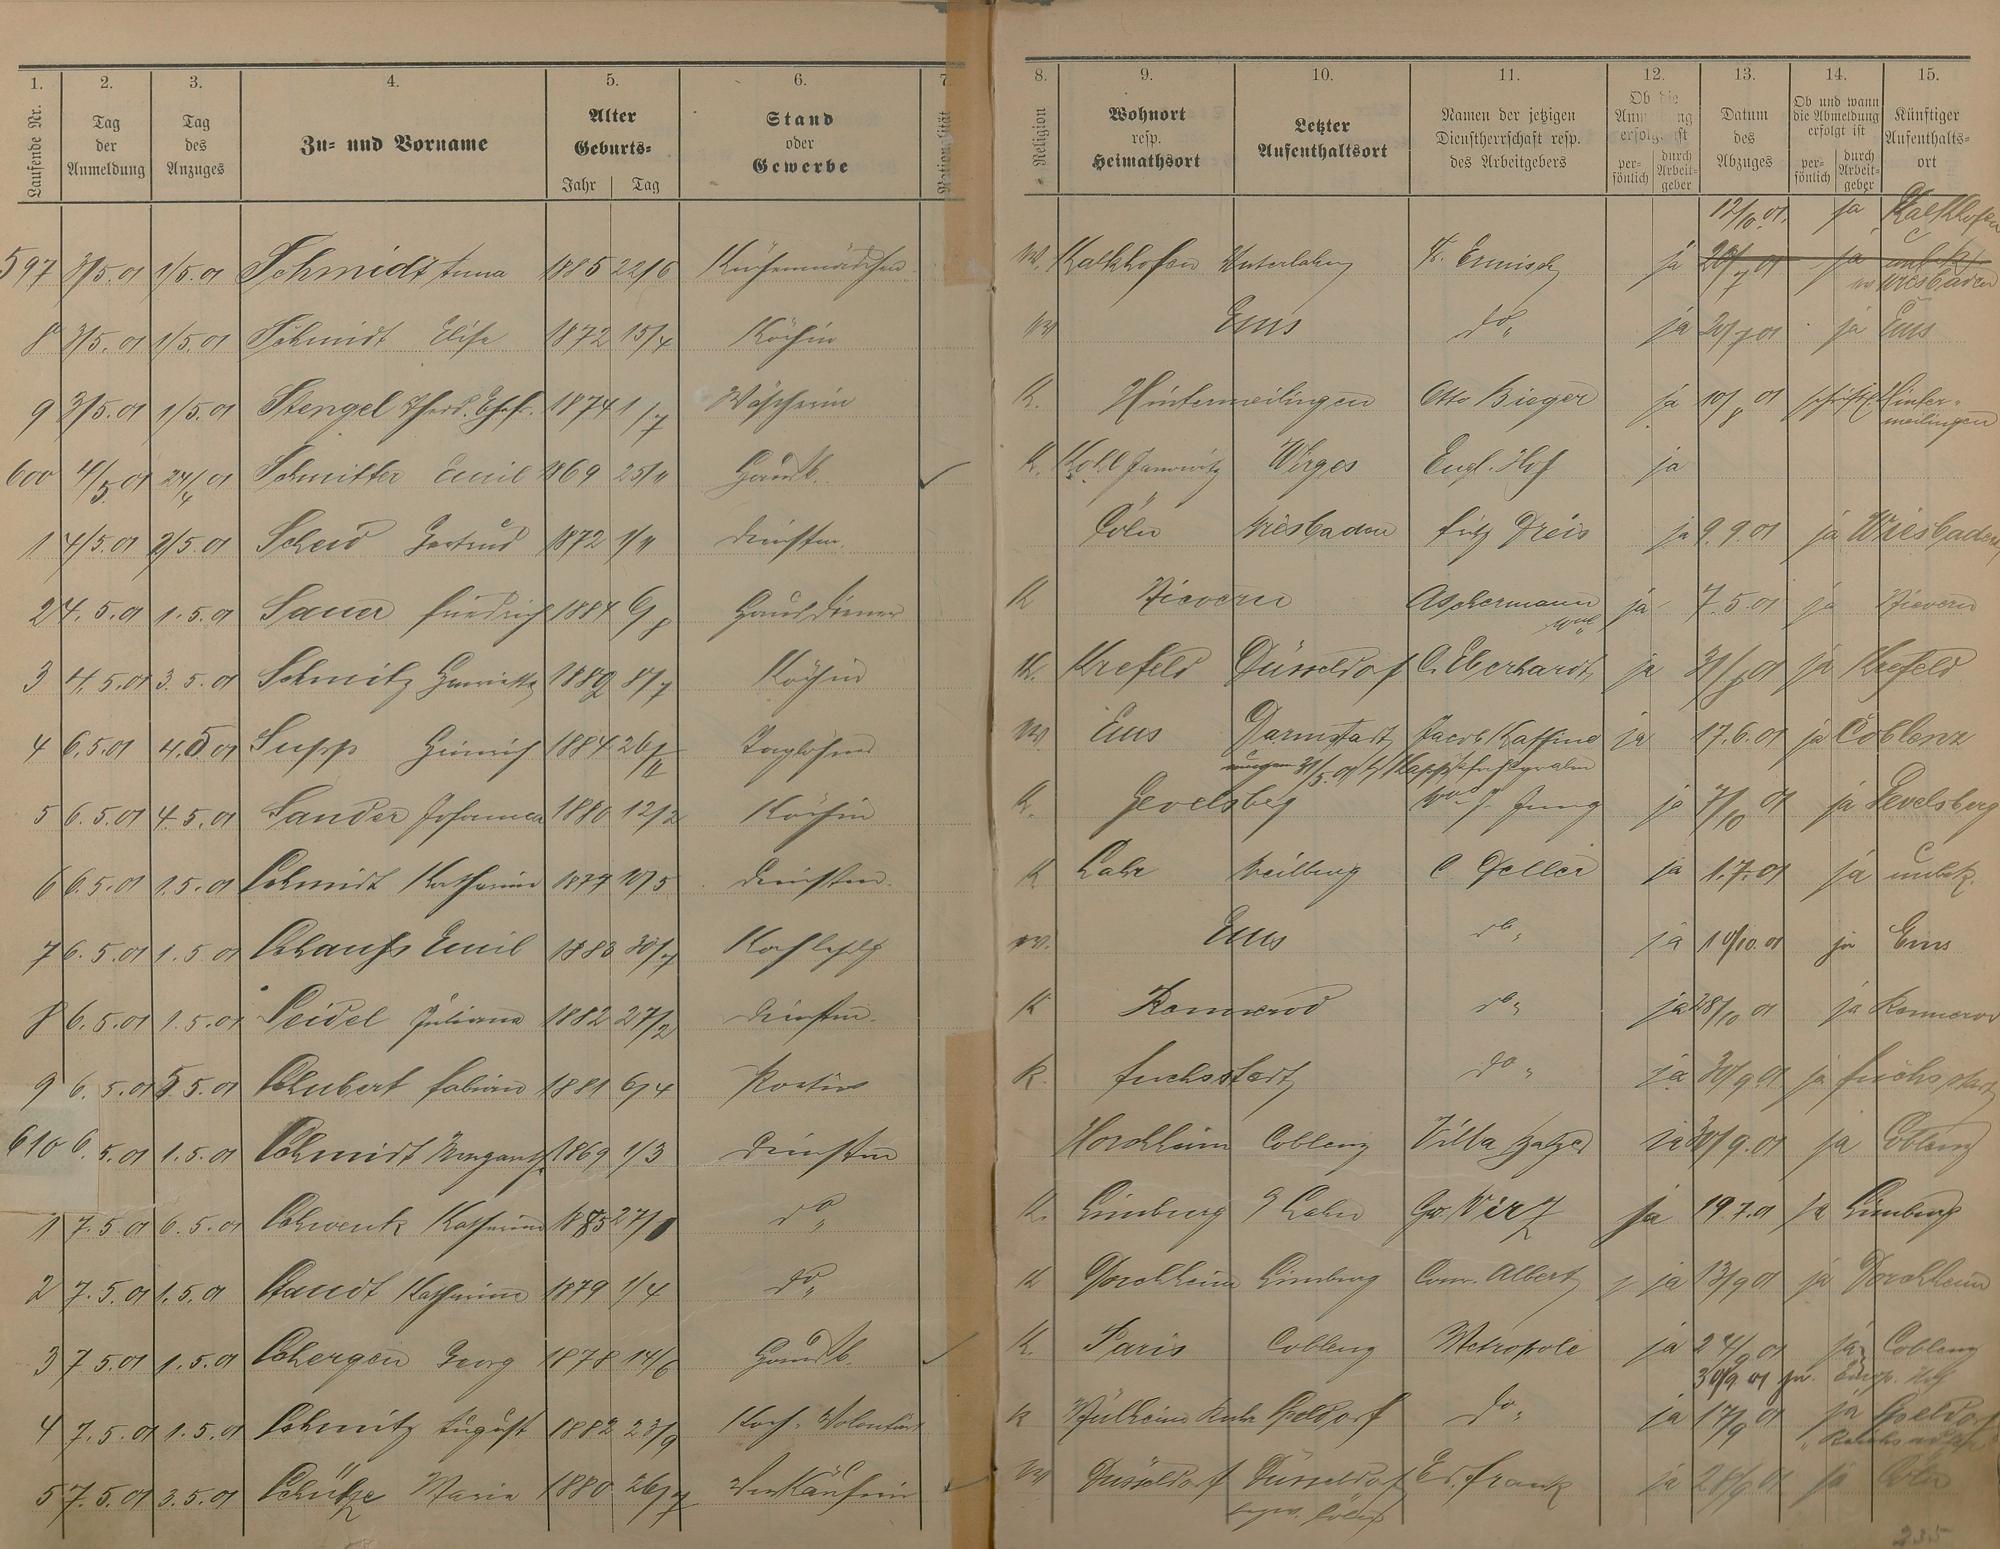 1. 2. 3. 4. 5. 6. 7 8. 9. 10. 11. 12. 13. 14. 15.
Laufende Nr. Tag der Anmeldung Tag des Anzuges Zu- und Vorname Alter Geburts- Jahr Tag Stand oder Gewerbe Religion Wohnort resp. Heimathsort Letzter Aufenthaltsort Namen der jetzigen Dienstherrschaft resp. des Arbeitgebers Ob die erfolgt ist persönlich durch Arbeitgeber Datum des Abzuges Ob und wann die Abmeldung erfolgt ist persönlich durch Arbeitgeber Künftiger Aufenthaltsort
12/10.01. ja Kalkhofen
597 3/5.01 1/5.01 Schmidt Anna 1885 22/6 Küchenmädchen W. Kalkhofen ja 20/7 01 ja unbek.
Wiesbaden
8 3/5.01 1/5.01 Schmidt Elise 1872 15/4 Köchin W Ems do„ ja 20/7 01 ja Ems
9 3/5.01 1/5.01 Stengel 1874 1/7 Wäscherin K. Hintermeilingen Otto Bieger ja 10/8 01 schriftl. Hinter-
meilingen
600 4/5 01 24/4 01 Schmitter Emil 1869 25/11 Hausb. K. Wirges Engl. Hof ja
1 4/5.01 2/5.01 Scheid Gertrud 1872 1/11 Dienstm. Cöln Wiesbaden Fritz Dreis ja 9.9.01 ja Wiesbaden
2 4.5.01 1.5.01 Sauer Friedrich 1884 6/8 Hausdiener K Nievern Aschermann ja 7.5.01 ja Nievern
3 4.5.01 3.5.01 Schmitz Henriette 1882 8/7 Köchin K. Krefeld Düsseldorf C. Eberhardt ja ja Krefeld
4 6.5.01 4.5 01 Supp Heinrich 1884 26/11 Taglöhner W Ems Darmstadt Jacob Kaffine ja 17.6.01 ja Coblenz
31/5.01
5 6.5.01 4.5.01 Sander Johanna 1880 12/2 Köchin K. Gevelsberg Wwe J. Jung ja 7/10 01 ja Gevelsberg
6 6.5.01 1.5.01 Schmidt Katharina 1879 10/5 Dienstm. K Lahr Weilburg C. Deller ja 1.7.01 ja unbek.
7 6.5.01 1.5.01 Schauss Emil 1883 30/7 Kochlehrlg W. Ems do„ ja 10/10.01 ja Ems
8 6.5.01 1.5.01 Seidel Juliana 1882 27/2 Dienstm. K Rennerod do„ ja 28/10 01 ja Rennerod
9 6.5.01 5.5.01 Schubert Fabian 1881 6/4 Portier K. Fuchsstadt do„ ja 30/9 01 ja Fuchsstadt
610 6.5.01 1.5.01 Schmidt 1869 1/3 Dienstm Horchheim Coblenz Villa ja 30/9.01 ja Coblenz
1 7.5.01 6.5.01 Schwenk Katharina 1885 27/1 do„ K. Limburg a/ Lahn Gw. Wirz ja 19.7.01 ja Limburg
2 7.5.01 1.5.01 Staudt Katharina 1879 1/4 do„ K Dorchheim Limburg Conr. Albert ja 13/9 01 ja Dorchheim
3 7.5.01 1.5.01 Schergen Georg 1878 14/6 Hausb. K. Paris Coblenz Metropole ja 24/9 01 ja Coblenz
30/9 01 ja. Europ. Hof
4 7.5.01 1.5.01 Schmitz August 1882 23/9 Koch-Volontär K Mülheim Ruhr Speldorf do„ ja 17/9 01 ja Speldorf
5 7.5.01 3.5.01 Schütze Maria 1880 26/7 Verkäuferin W Düsseldorf Düsseldorf Ed. Frank ja 28/9 01 ja Cöln
bezw. Cöln
235